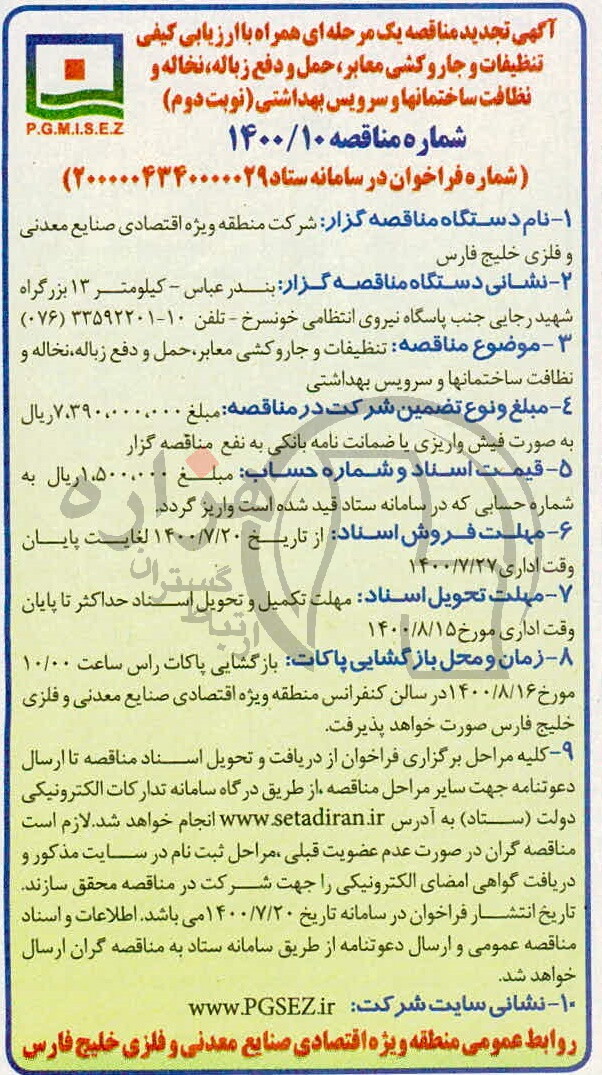 آگهی تجدید مناقصه یک مرحله ای همراه با ارزیابی کیفی
تنظیفات و جاروکشی معابر، حمل و دفع زباله، نخاله و
نظافت ساختمانها و سرویس بهداشتی (نوبت دوم)
P.G.M.I.S.E.Z
شماره مناقصه ۱۴۰۰/۱۰
(شماره فراخوان در سامانه ستاد ۲۰۰۰۰۰۴۳۴۰۰۰۰۰۲۹)
۱-نام دستگاه مناقصه گزار: شرکت منطقه ویژه اقتصادی صنایع معدنی
و فلزی خلیج فارس
۲-نشانی دستگاه مناقصه گزار: بندر عباس - کیلومتر ۱۳ بزرگراه
شهید رجایی جنب پاسگاه نیروی انتظامی خونسرخ - تلفن ۱۰-۳۳۵۹۲۲۰۱ (۰۷۶)
۳-موضوع مناقصه: تنظیفات و جاروکشی معابر،حمل و دفع زباله،نخاله و
نظافت ساختمانها و سرویس بهداشتی
۴-مبلغ ونوع تضمین شرکت در مناقصه:مبلغ ۷،۳۹۰،۰۰۰،۰۰۰ریال
به صورت فیش واریزی یا ضمانت نامه بانکی به نفع مناقصه گزار
۵-قیمت اسناد و شماره حساب: مبلغ ۱،۵۰۰،۰۰۰ریال به
شماره حسابی که در سامانه ستاد قید شده است واریز گردد.
۶-مهلت فروش اسناد: از تاریخ ۱۴۰۰/۷/۲۰ لغایت پایان
وقت اداری ۱۴۰۰/۷/۲۷
۷-مهلت تحویل اسناد: مهلت تکمیل و تحویل اسناد حداکثر تا پایان
وقت اداری مورخ۱۴۰۰/۸/۱۵
۸-زمان و محل بازگشایی پاکات: بازگشایی پاکات راس ساعت ۱۰/۰۰
مورخ۱۴۰۰/۸/۱۶در سالن کنفرانس منطقه ویژه اقتصادی صنایع معدنی و فلزی
خلیج فارس صورت خواهد پذیرفت.
۹-کلیه مراحل برگزاری فراخوان از دریافت و تحویل اسناد مناقصه تا ارسال
دعوتنامه جهت سایر مراحل مناقصه ،از طریق درگاه سامانه تدارکات الکترونیکی
دولت (ستاد) به آدرس www.setadiran.ir انجام خواهد شد.لازم است
مناقصه گران در صورت عدم عضویت قبلی ،مراحل ثبت نام در سایت مذکور و
دریافت گواهی امضای الکترونیکی را جهت شرکت در مناقصه محقق سازند.
تاریخ انتشار فراخوان در سامانه تاریخ ۱۴۰۰/۷/۲۰می باشد.اطلاعات و اسناد
مناقصه عمومی و ارسال دعوتنامه از طریق سامانه ستاد به مناقصه گران ارسال
خواهد شد.
۱۰-نشانی سایت شرکت: www.PGSEZ.ir
روابط عمومی منطقه ویژه اقتصادی صنایع معدنی و فلزی خلیج فارس
هزاره
گستران
ارتباط